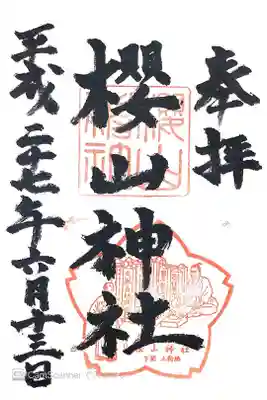 奉拝
櫻山神社
平成二十七年六月十三日
櫻山神社
櫻山神社
下関 上新地
CamScanner